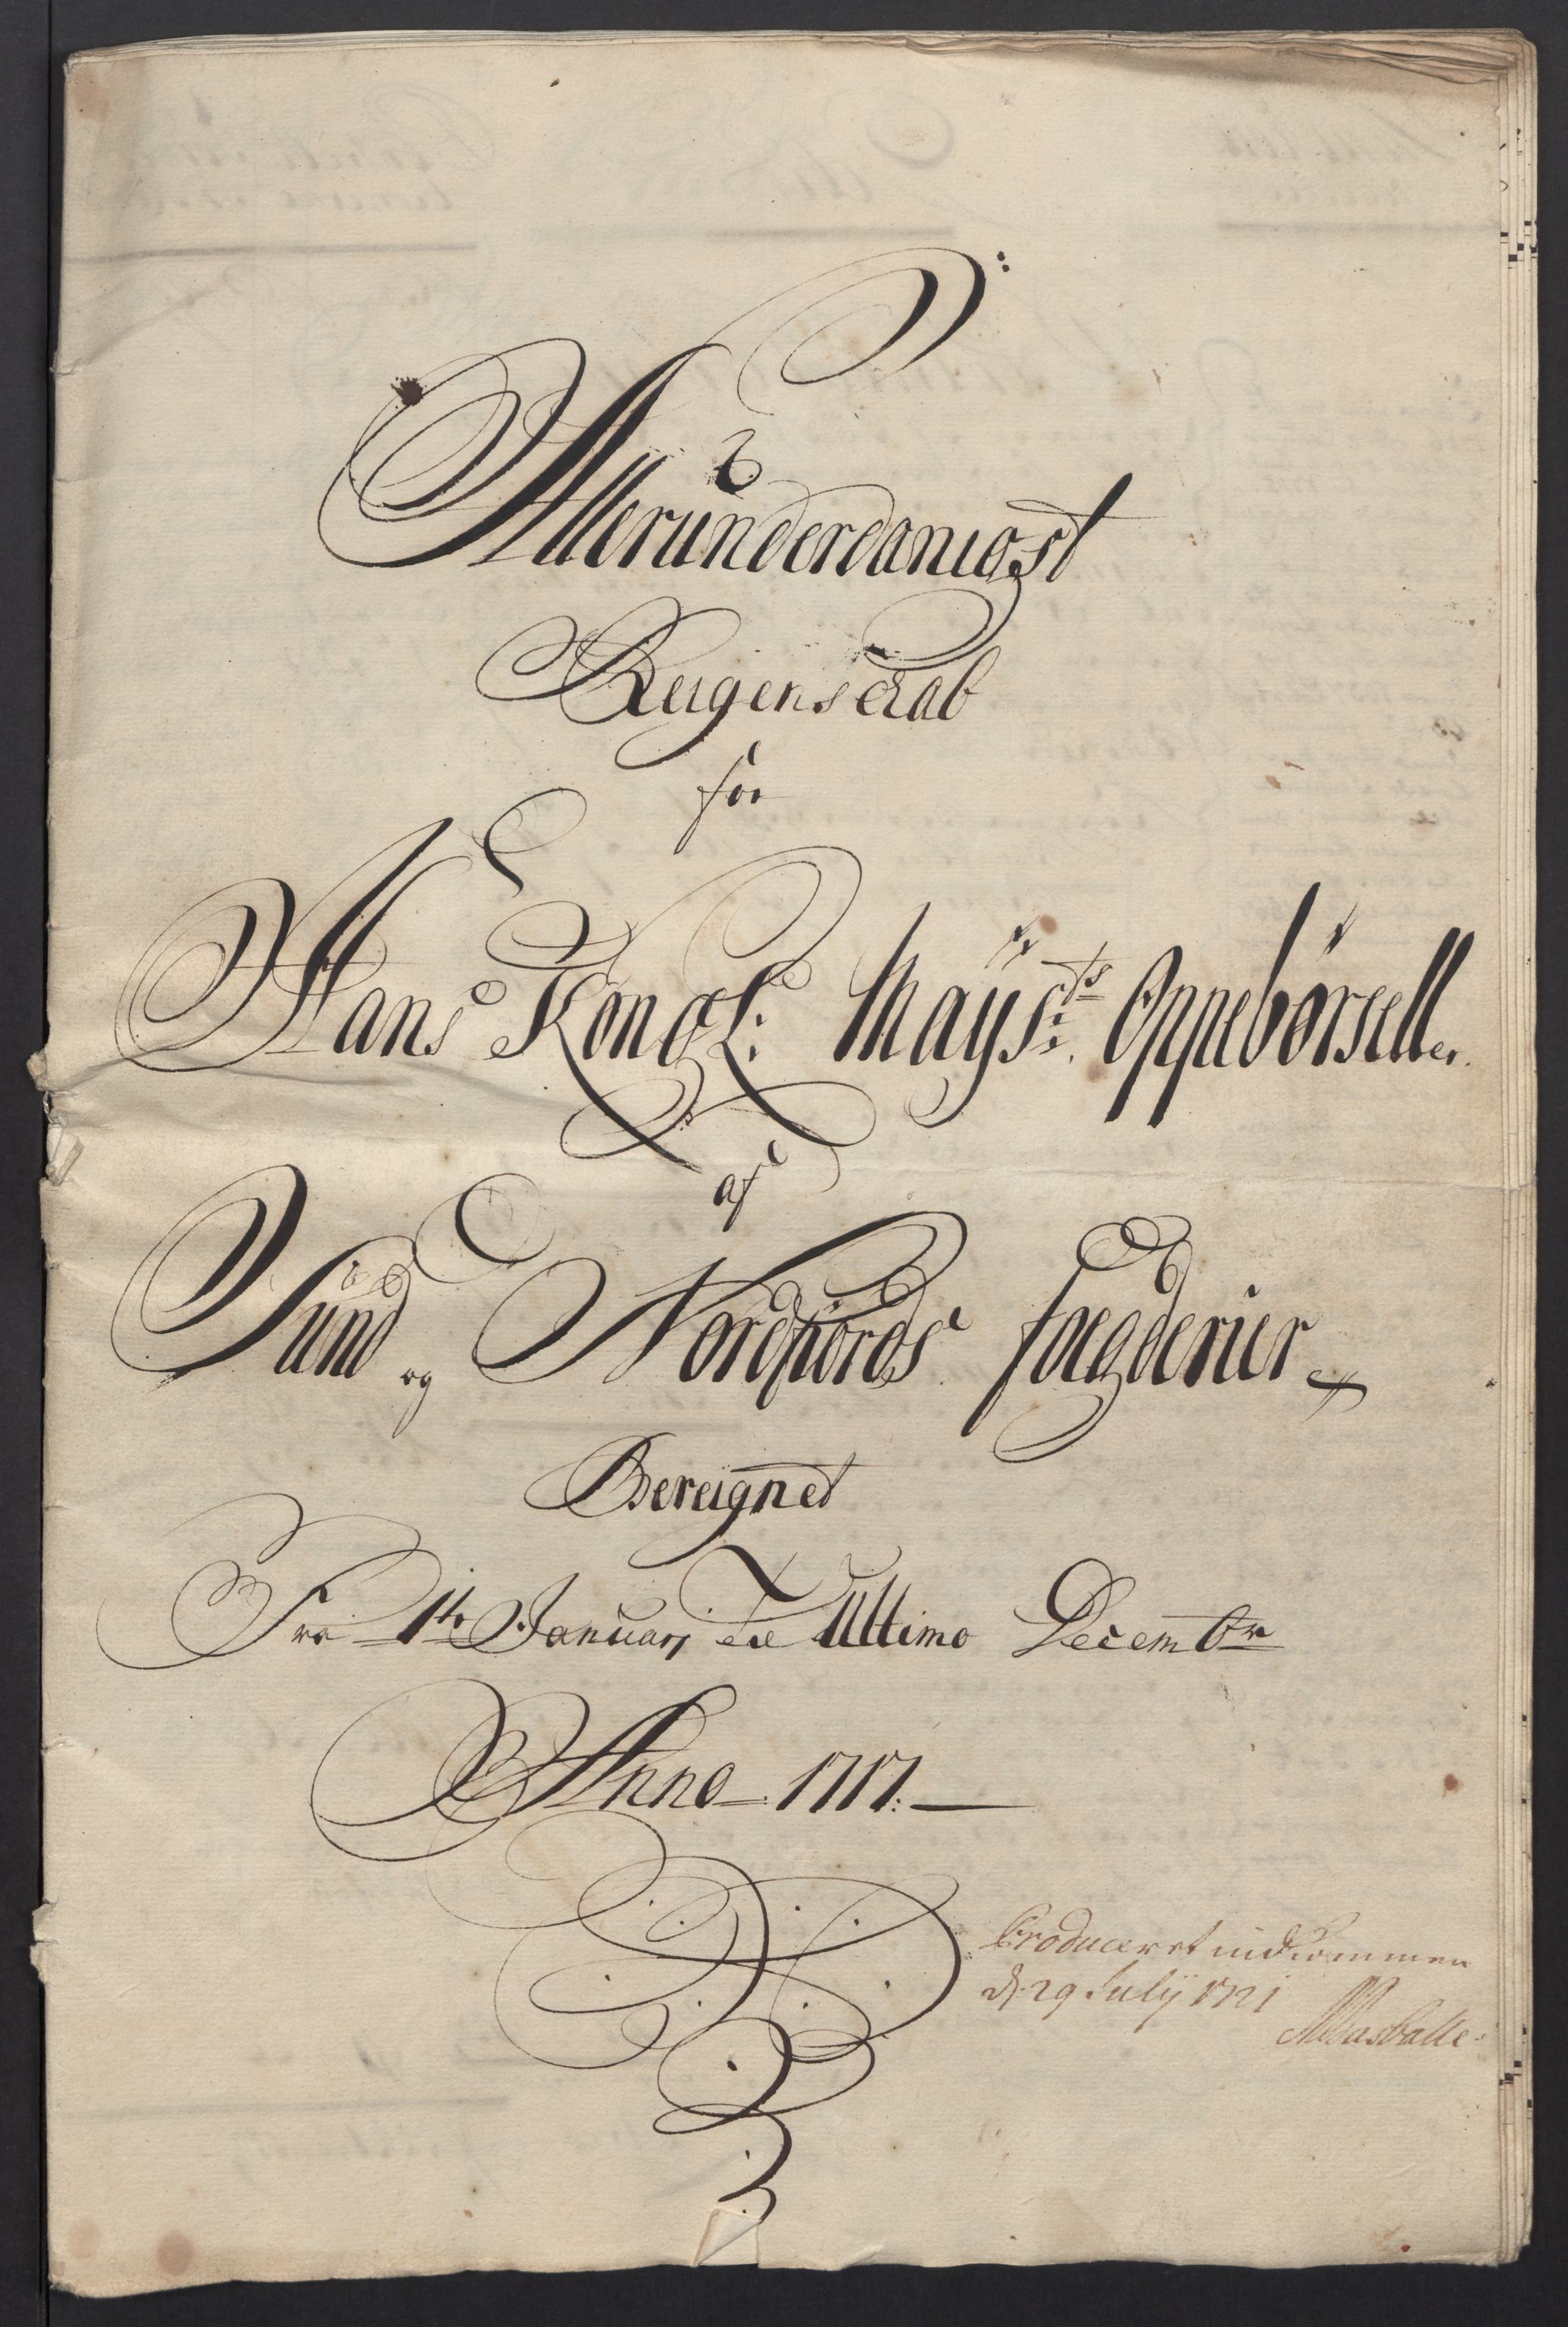 Alleründerdanigst
Reigenskab
for
Hans Kongl: Mayst:ts Oppebørseller.
af
Sünd og Nordfiords fogderier
Bereignet
Fra 1te Januarj til Ultimo Decembr
Anno 1717.
Produceret indkommen
d. 29 Julij 1721